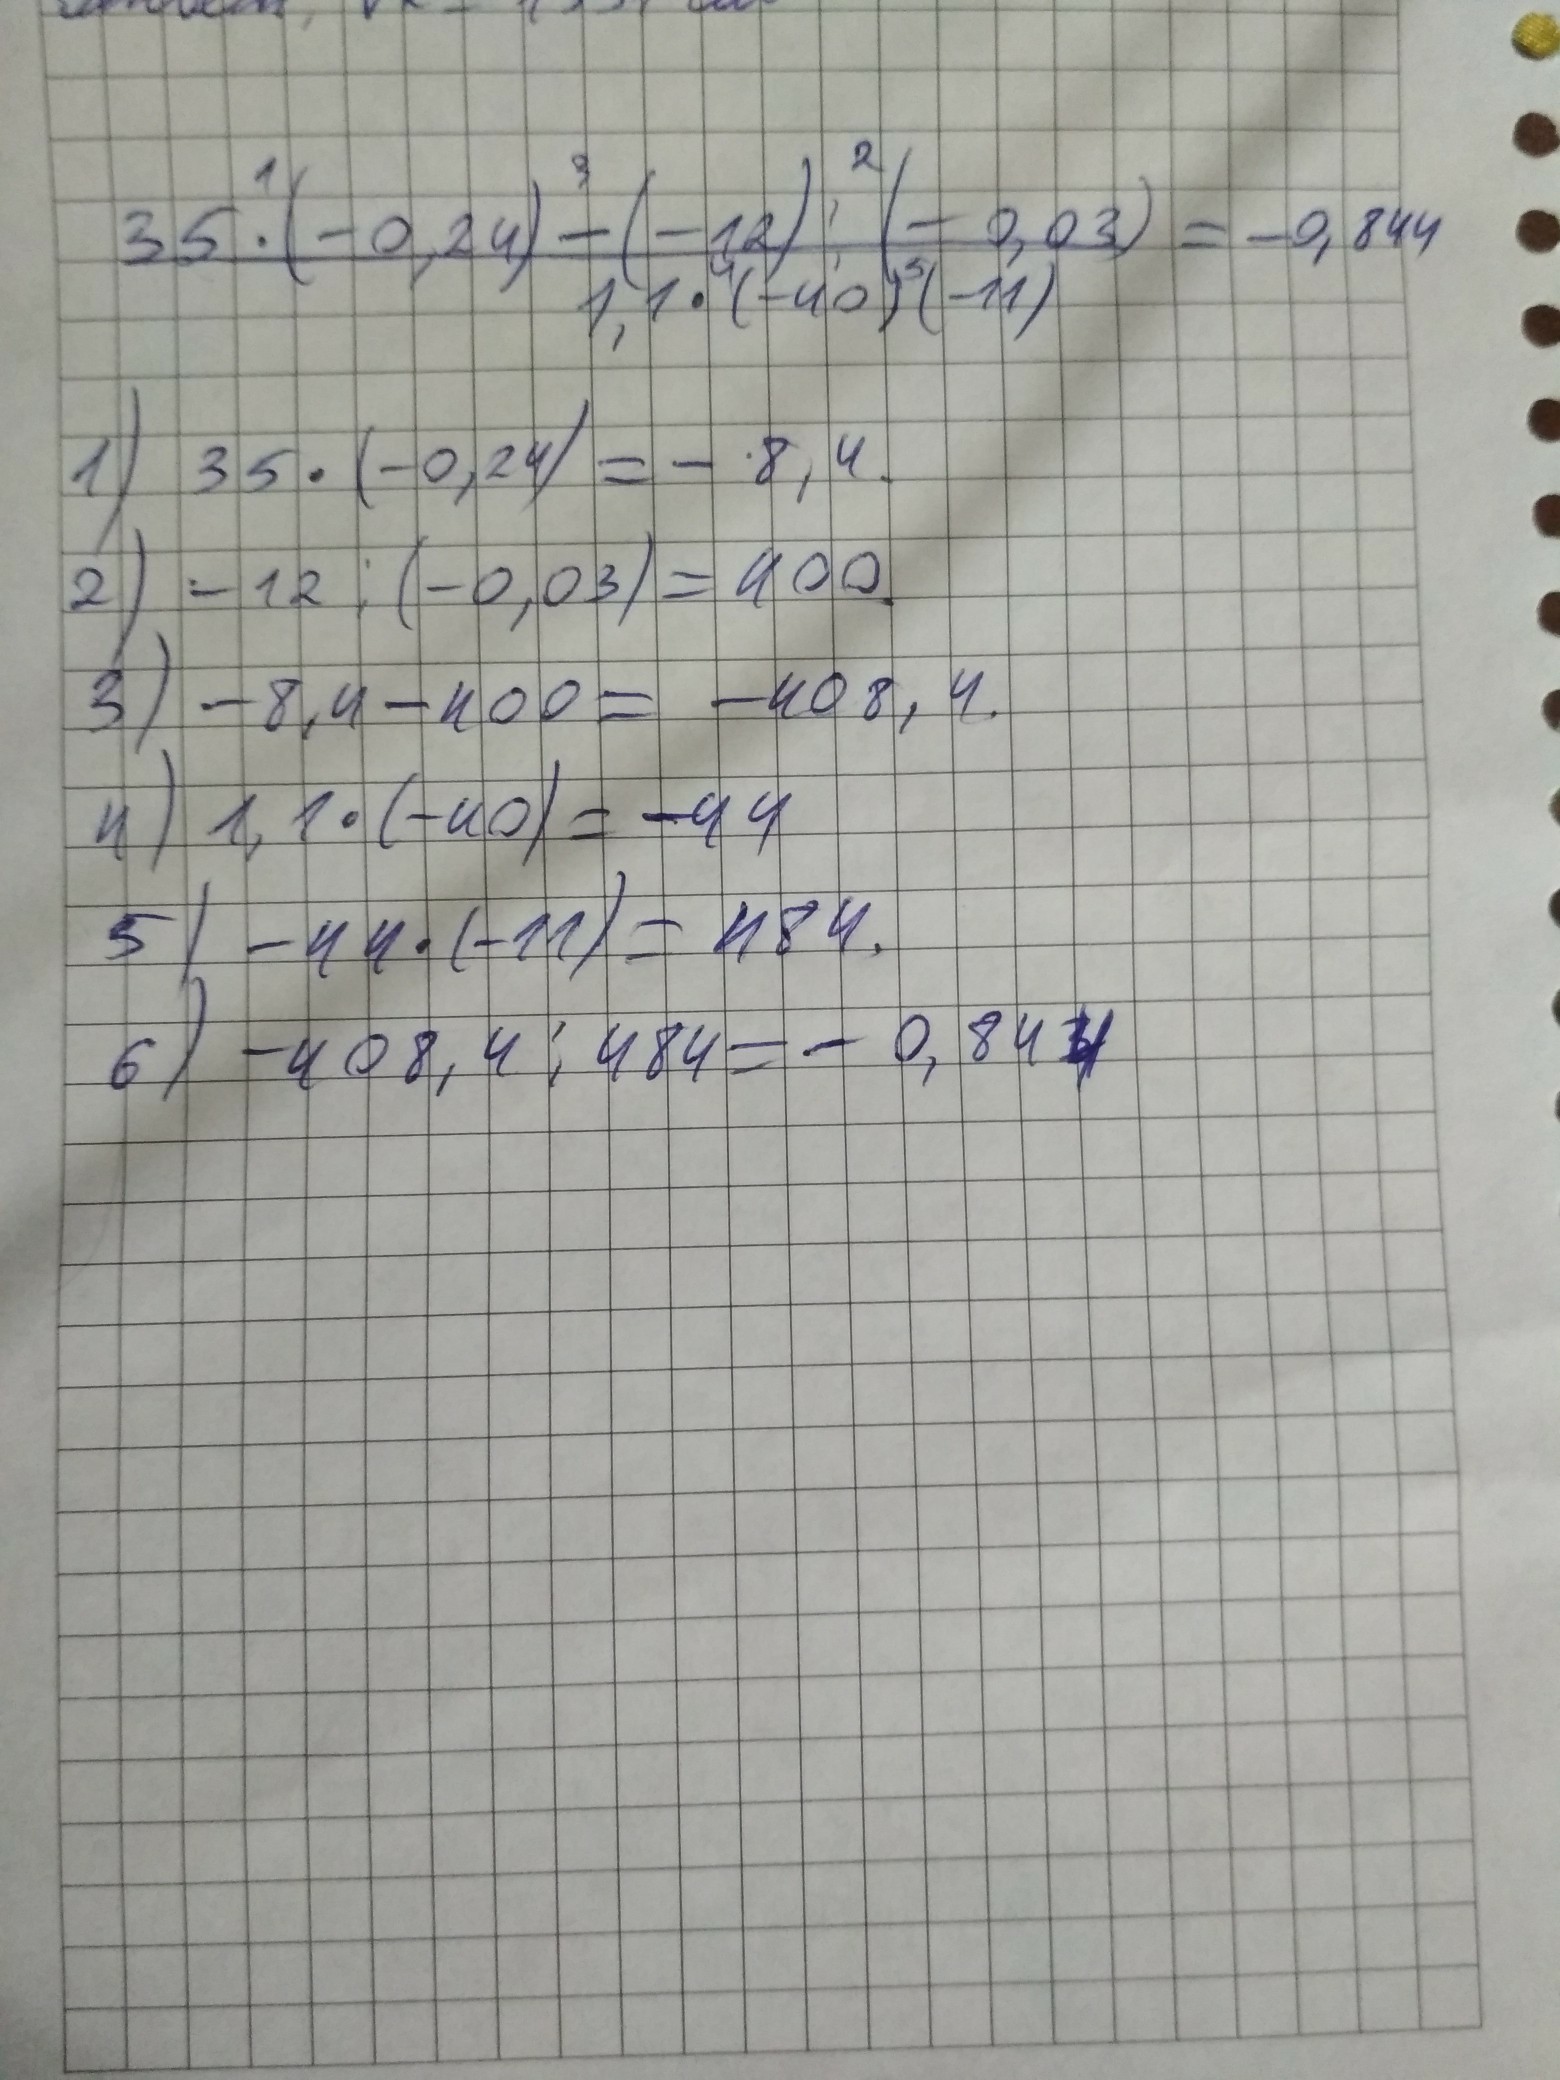 1 3 2
35 · (-0,24) - (-12) : (-0,03) = -0,844
4 5
1,1 · (-40) (-11)
1) 35 · (-0,24) = - 8,4.
2) -12 : (-0,03) = 400.
3) -8,4 - 400 = -408,4.
4) 1,1 · (-40) = -44
5) -44 · (-11) = 484.
6) -408,4 : 484 = - 0,844